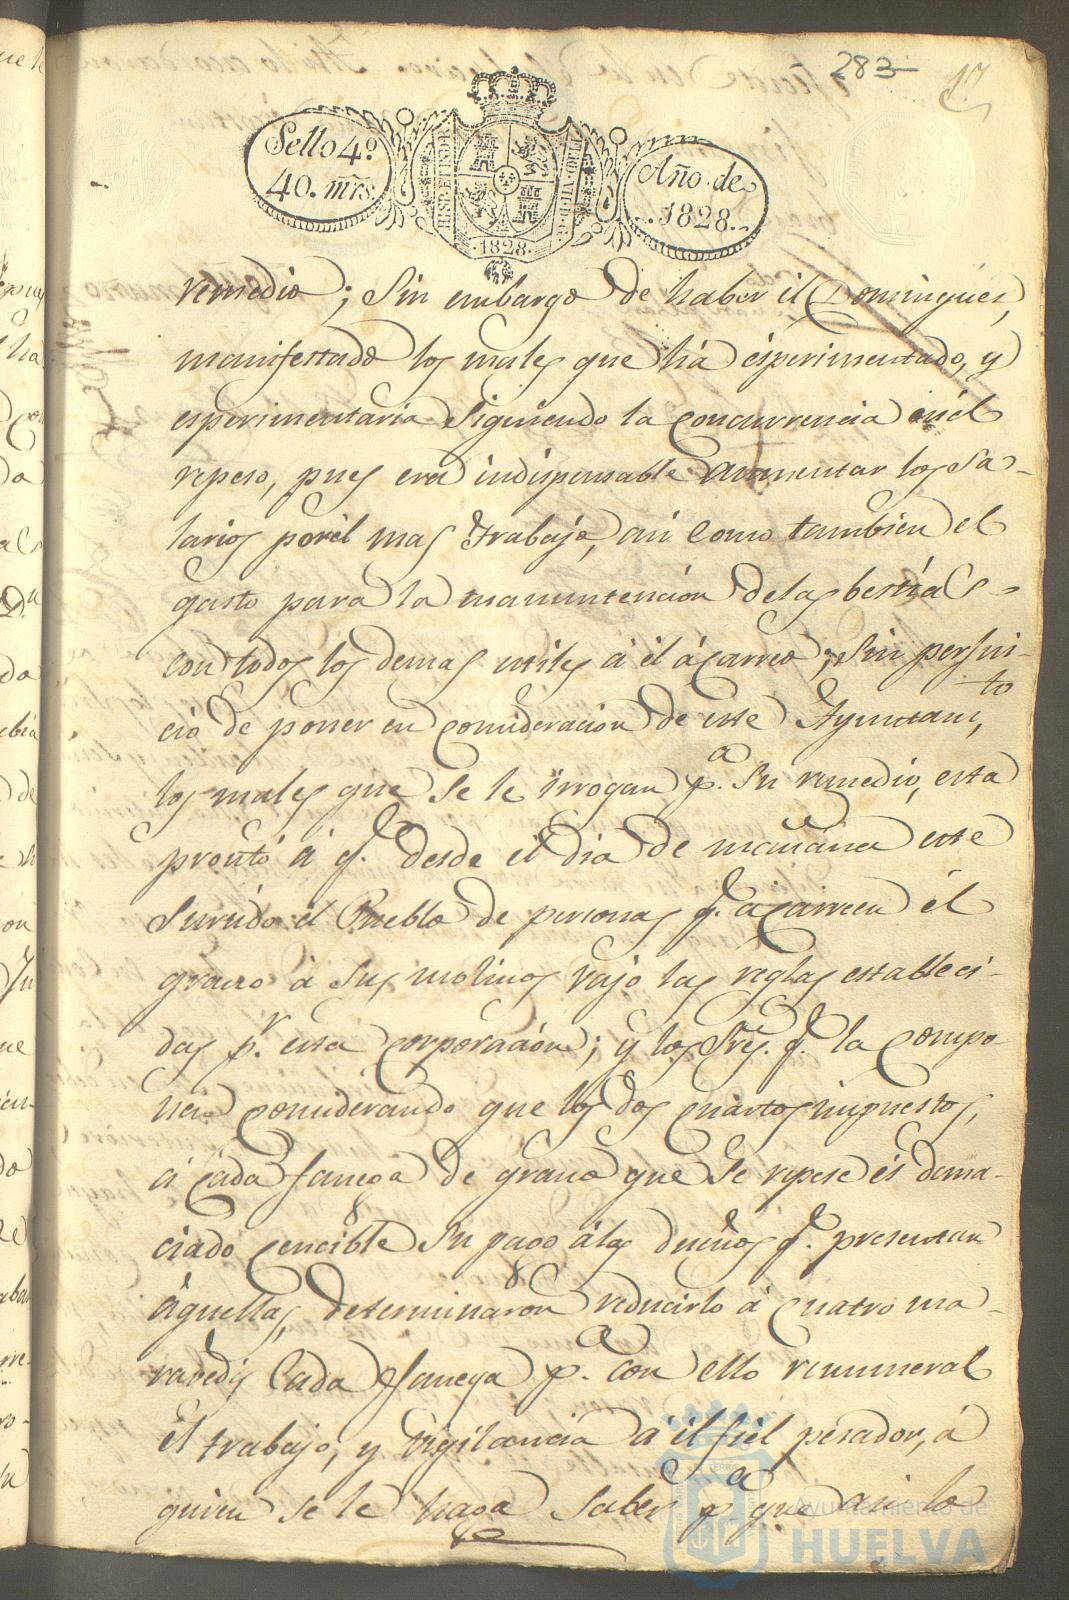 283
17
Sello 4º
40. mrs.
HISP. ET IND. R.
FERD. VII. D. G.
1828.
Año de
1828.
remedio; Sin embargo de haber el Dominguez,
manifestado los males que há ésperimentado, y
esperimentaria Siguiendo la Concurrencia en él
repeso, pues era indispensable aumentar los sa-
larios por él mas trabajo, asi Como tambien el
gasto para la manuntencion de las bestias
con todos los demas utiles á él ácarreo; Sin perjui-
cio de poner en consideracion de este Ayuntam,to
los males que Se le irrogan p.a Su remedio, esta
pronto á q.e desde el dia de mañana este
Surtido el Pueblo de personas q.e acarreen él
grano á Sus molinos vajo las reglas estableci-
das p.r esta Corporacion; y los Sres. q.e la compo-
nen considerando que los dos Cuartos impuestos,
á Cada fanega de grano que Se repese és dema-
ciado cencible Su pago á los dueños q.e presentan
áquellas, determinaron reducirlo á Cuatro ma-
ravedis Cada fanega p.a con ello remuneral
él trabajo, y vigilancia á él fiel pesador, á
quien se le haga Saber p.a que asi lo
Ayuntamiento de
HUELVA